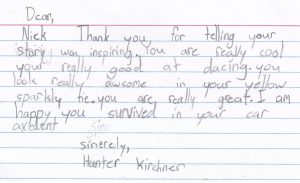 Dear,
Nick Thank you for telling your
story was inspiring. You are really cool
your really good at dacing. you
look really awsome in your yellow
sparkly tie. you are really great. I am
happy you survived in your car
axedent sinc
sincerely,
Hunter Kirchner